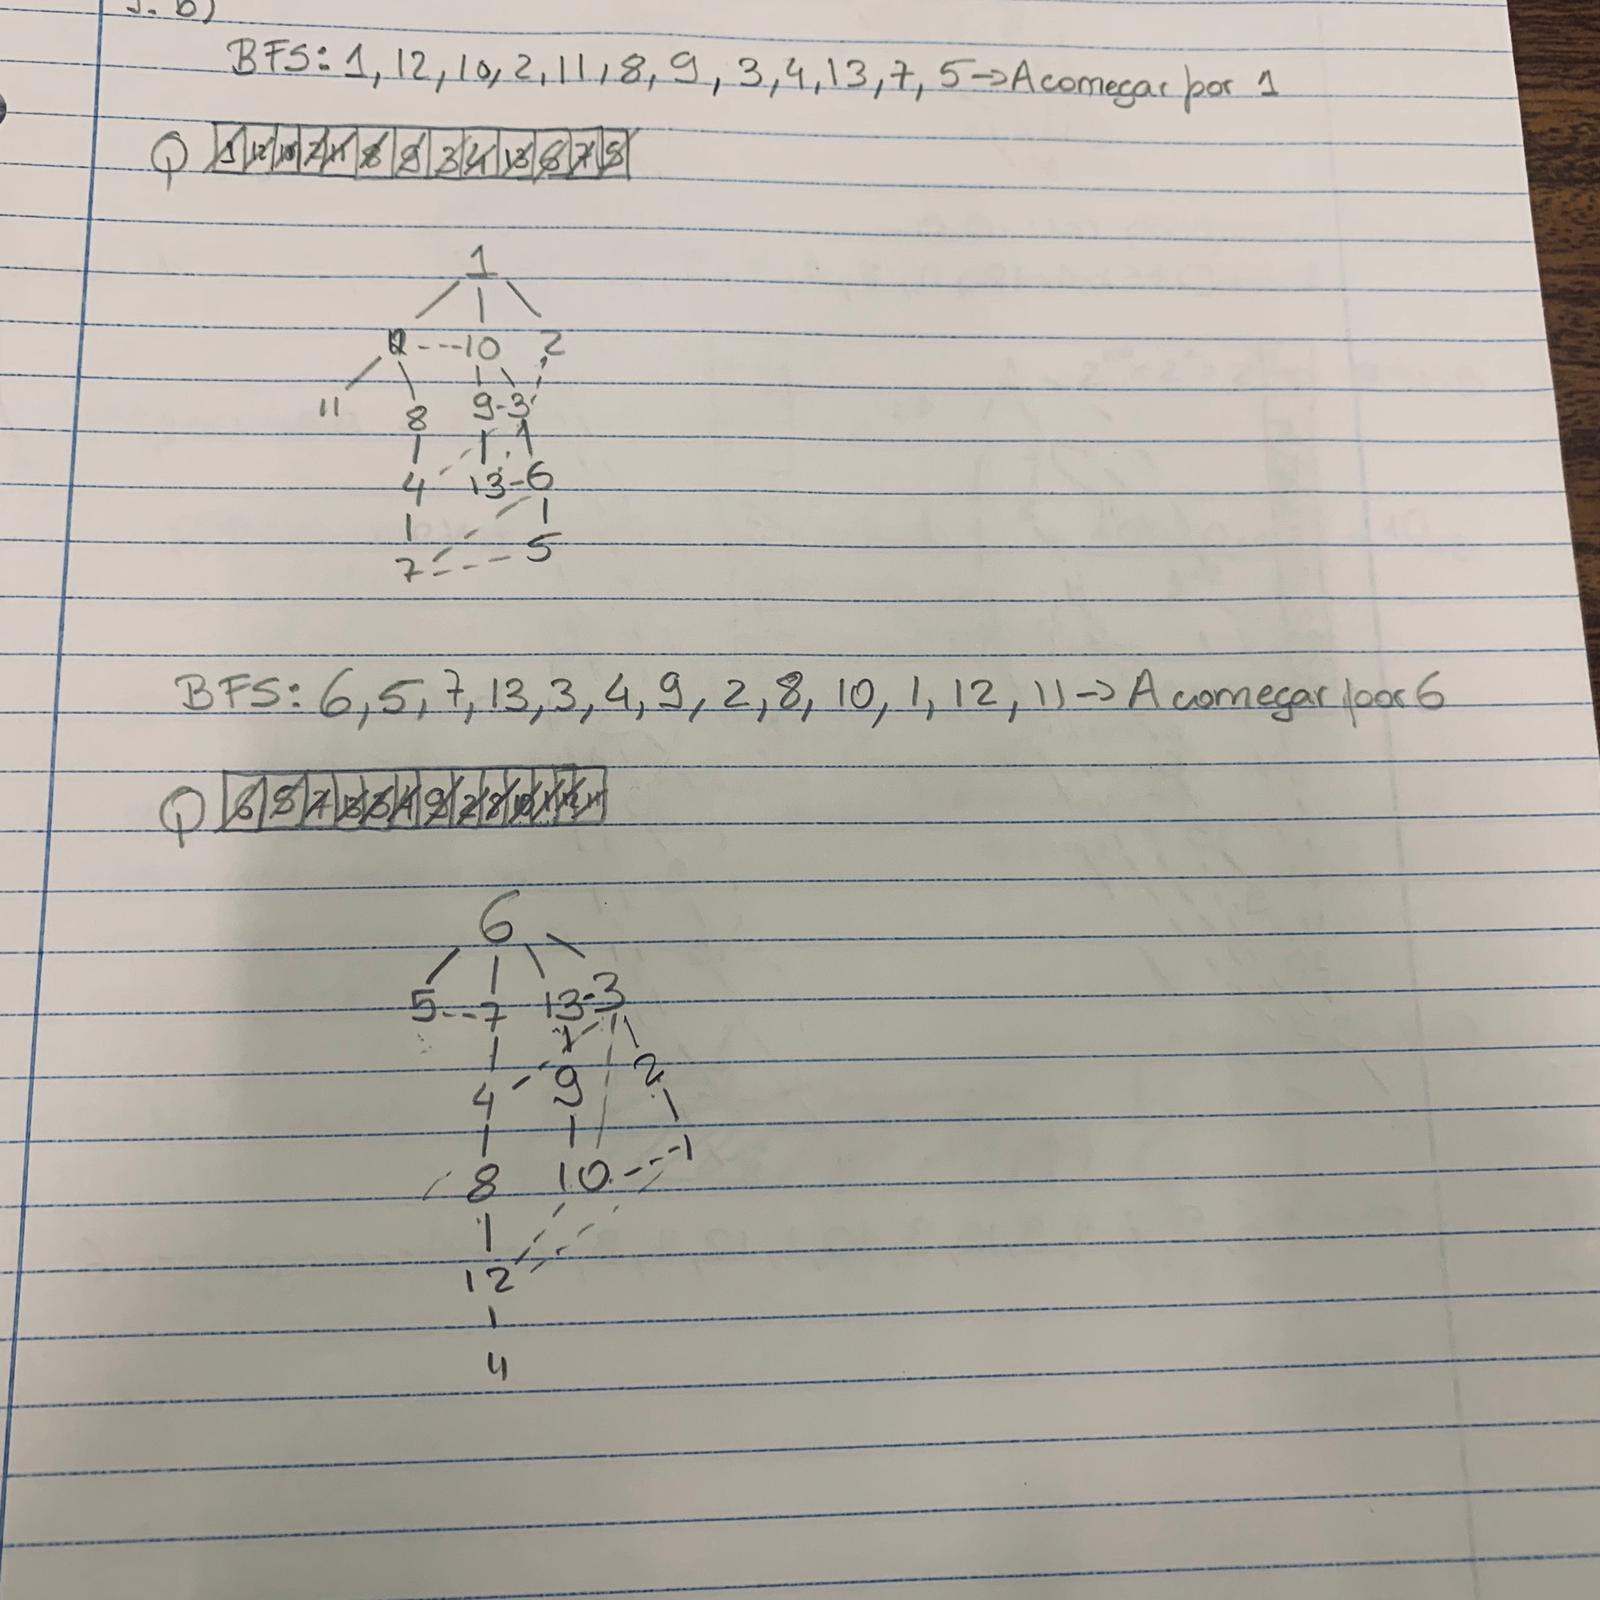 b)
BFS: 1, 12, 10, 2, 11, 8, 9, 3, 4, 13, 7, 5 -> A começar por 1
Q 1 12 10 2 11 8 9 3 4 13 6 7 5
1
12 --- 10 2
11 8 9 - 3
4 13 - 6
7 --- 5
BFS: 6, 5, 7, 13, 3, 4, 9, 2, 8, 10, 1, 12, 11 -> A começar por 6
Q 6 5 7 13 3 4 9 2 8 10 1 12 11
6
5 -- 7 13 - 3
4 9 2
8 10 --- 1
12
4